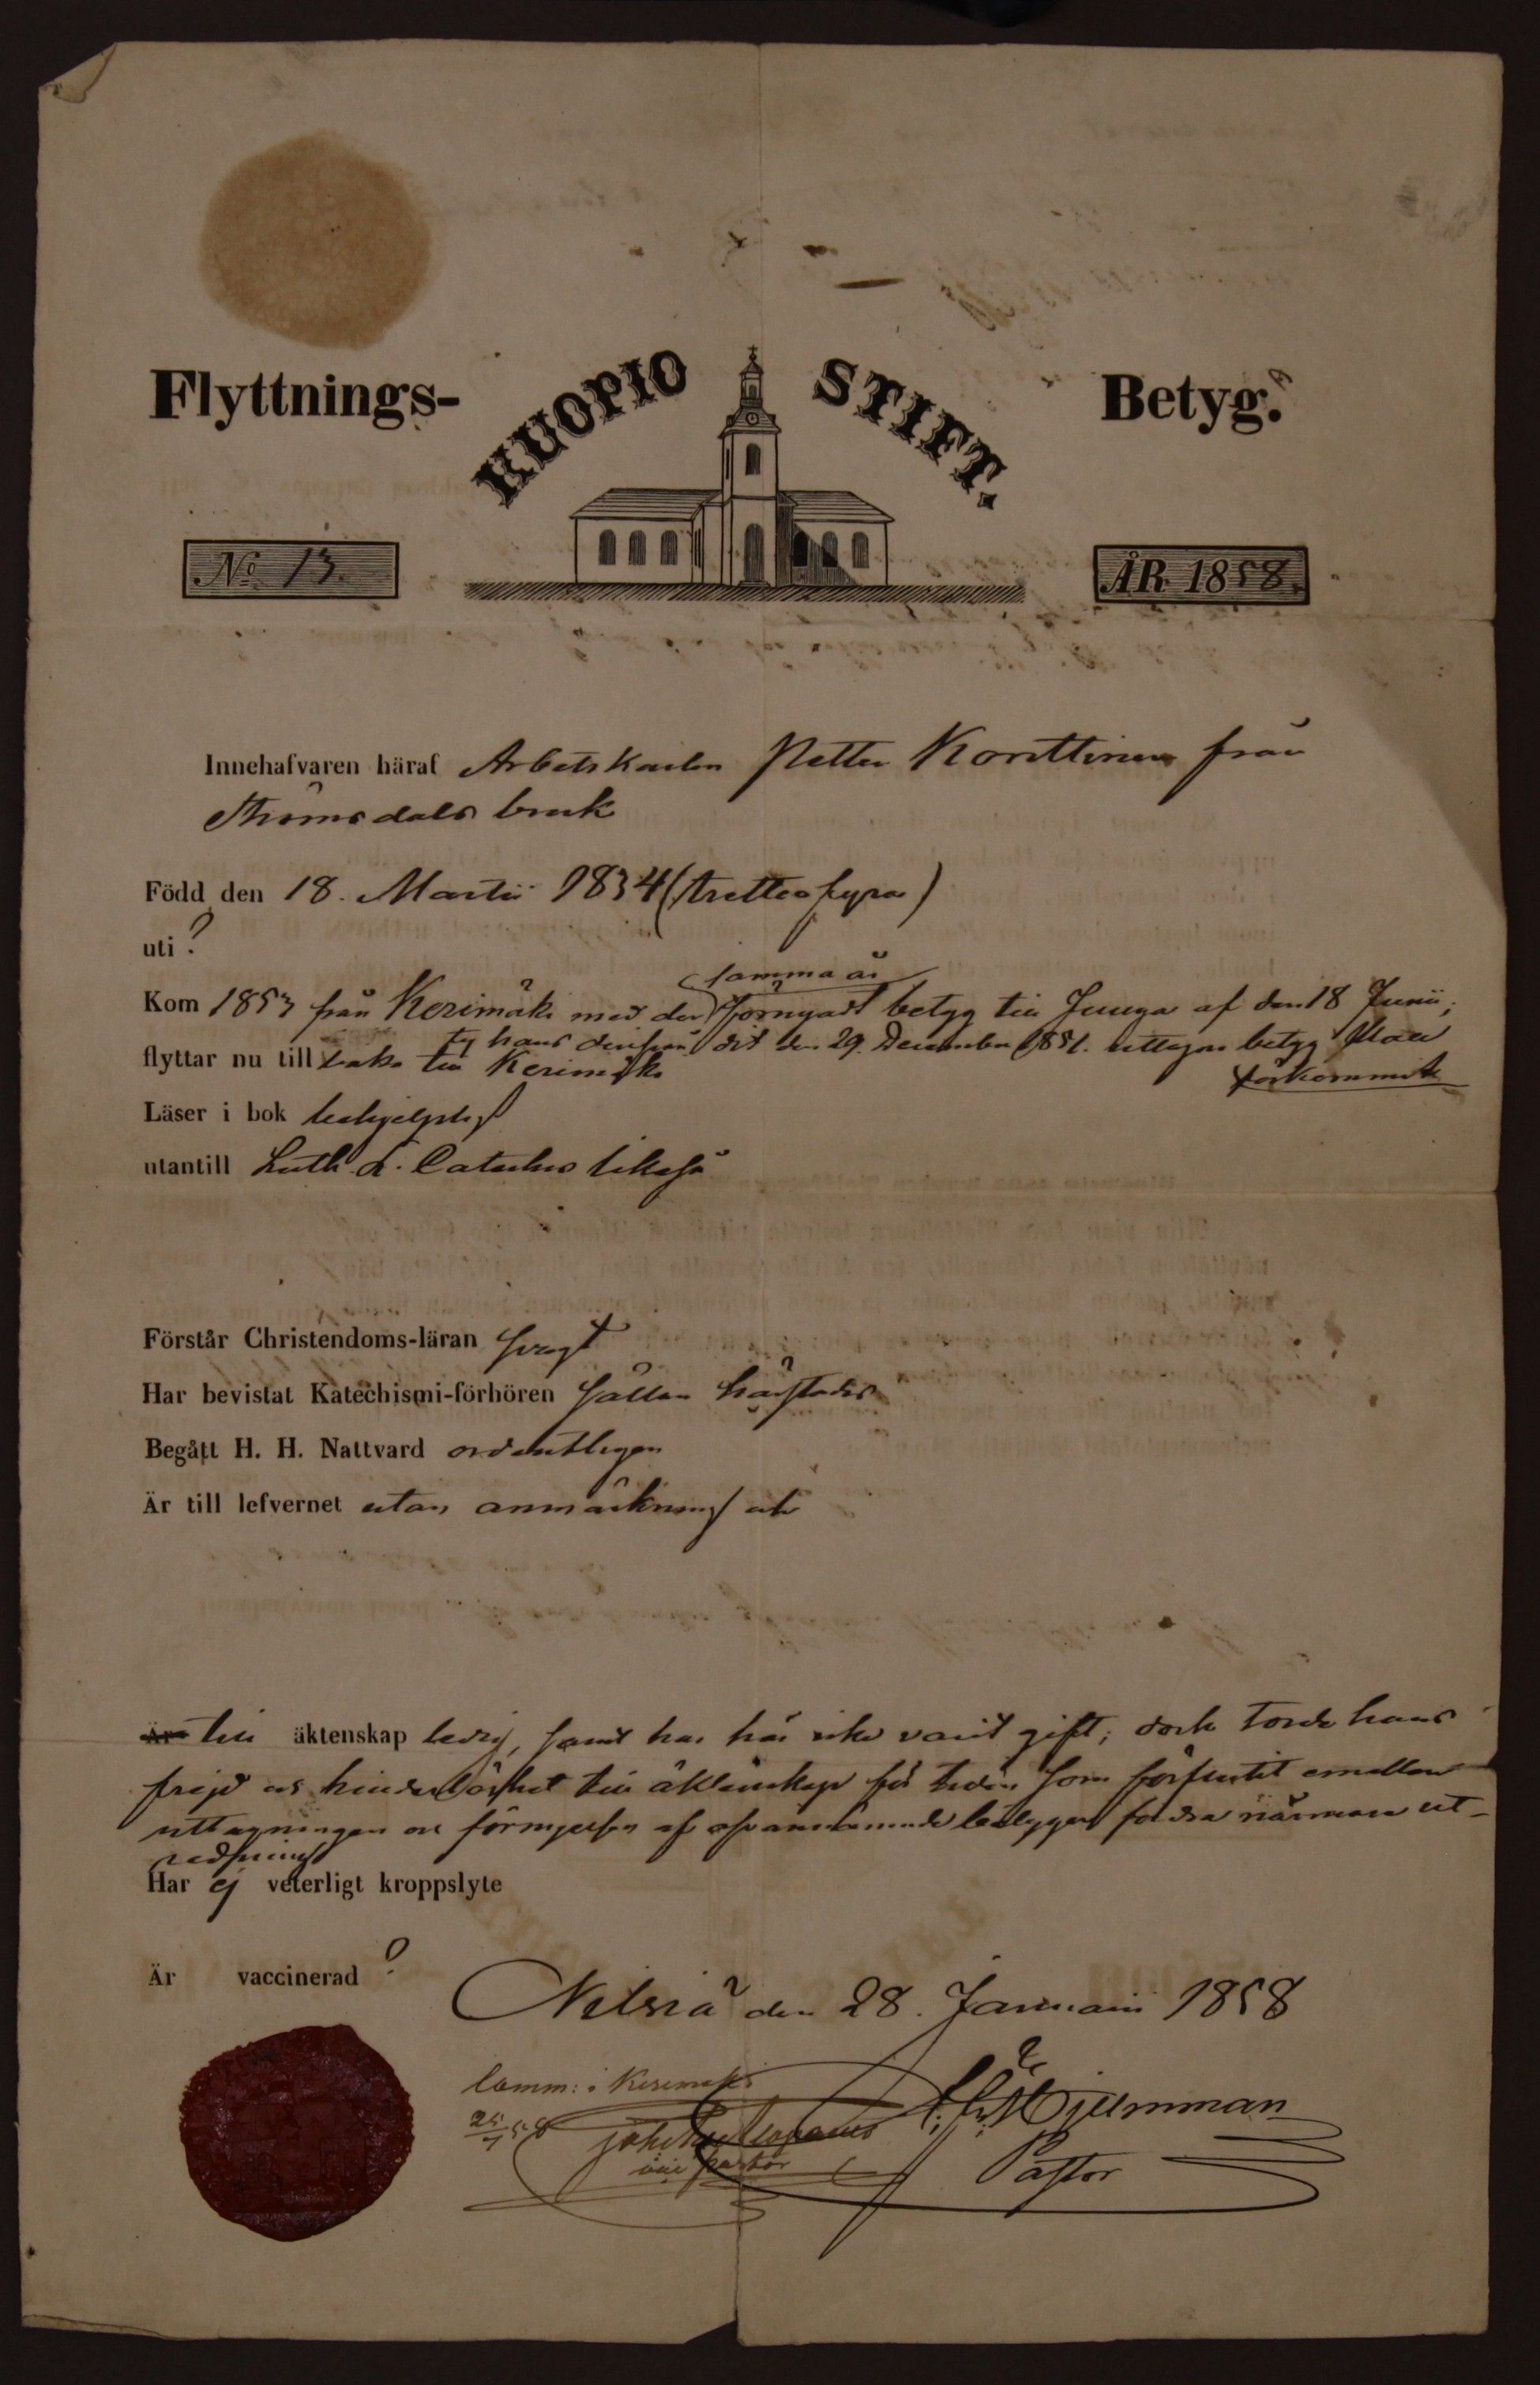 Flyttnings- KUOPIO STIFT. Betyg.
No 13. ÅR 1858.
Innehafvaren häraf Arbetskarlen Petter Konttinen från
Strömsdals bruk
Född den 18. Martii 1834 (trettiofyra)
uti ?
samma år
Kom 1853 från Kerimäki med der förnyadt betyg till Juuga af den 18 Junii;
ty hans derifrån dit den 29. December 1851. uttagne betyg
flyttar nu till baka till Kerimäki förkommit
Läser i bok behjelpligt
utantill Luth. L. Cateches likaså
Förstår Christendoms-läran svagt
Har bevistat Katechismi-förhören sällan härstädes
Begått H. H. Nattvard ordentligen
Är till lefvernet utan anmärkning
Är till äktenskap ledig, samt har här icke varit gift; dock torde hans
frejd och hinderlöshet till äktenskap för tiden som förflutit emellan
uttagningen och förnyelsen af betyget fordra närmare ut-
redning
Har ej veterligt kroppslyte
Är vaccinerad ?
Nilsiä den 28. Januarii 1858
Hjelmman
Pastor
i Kerimäki
vice pastor